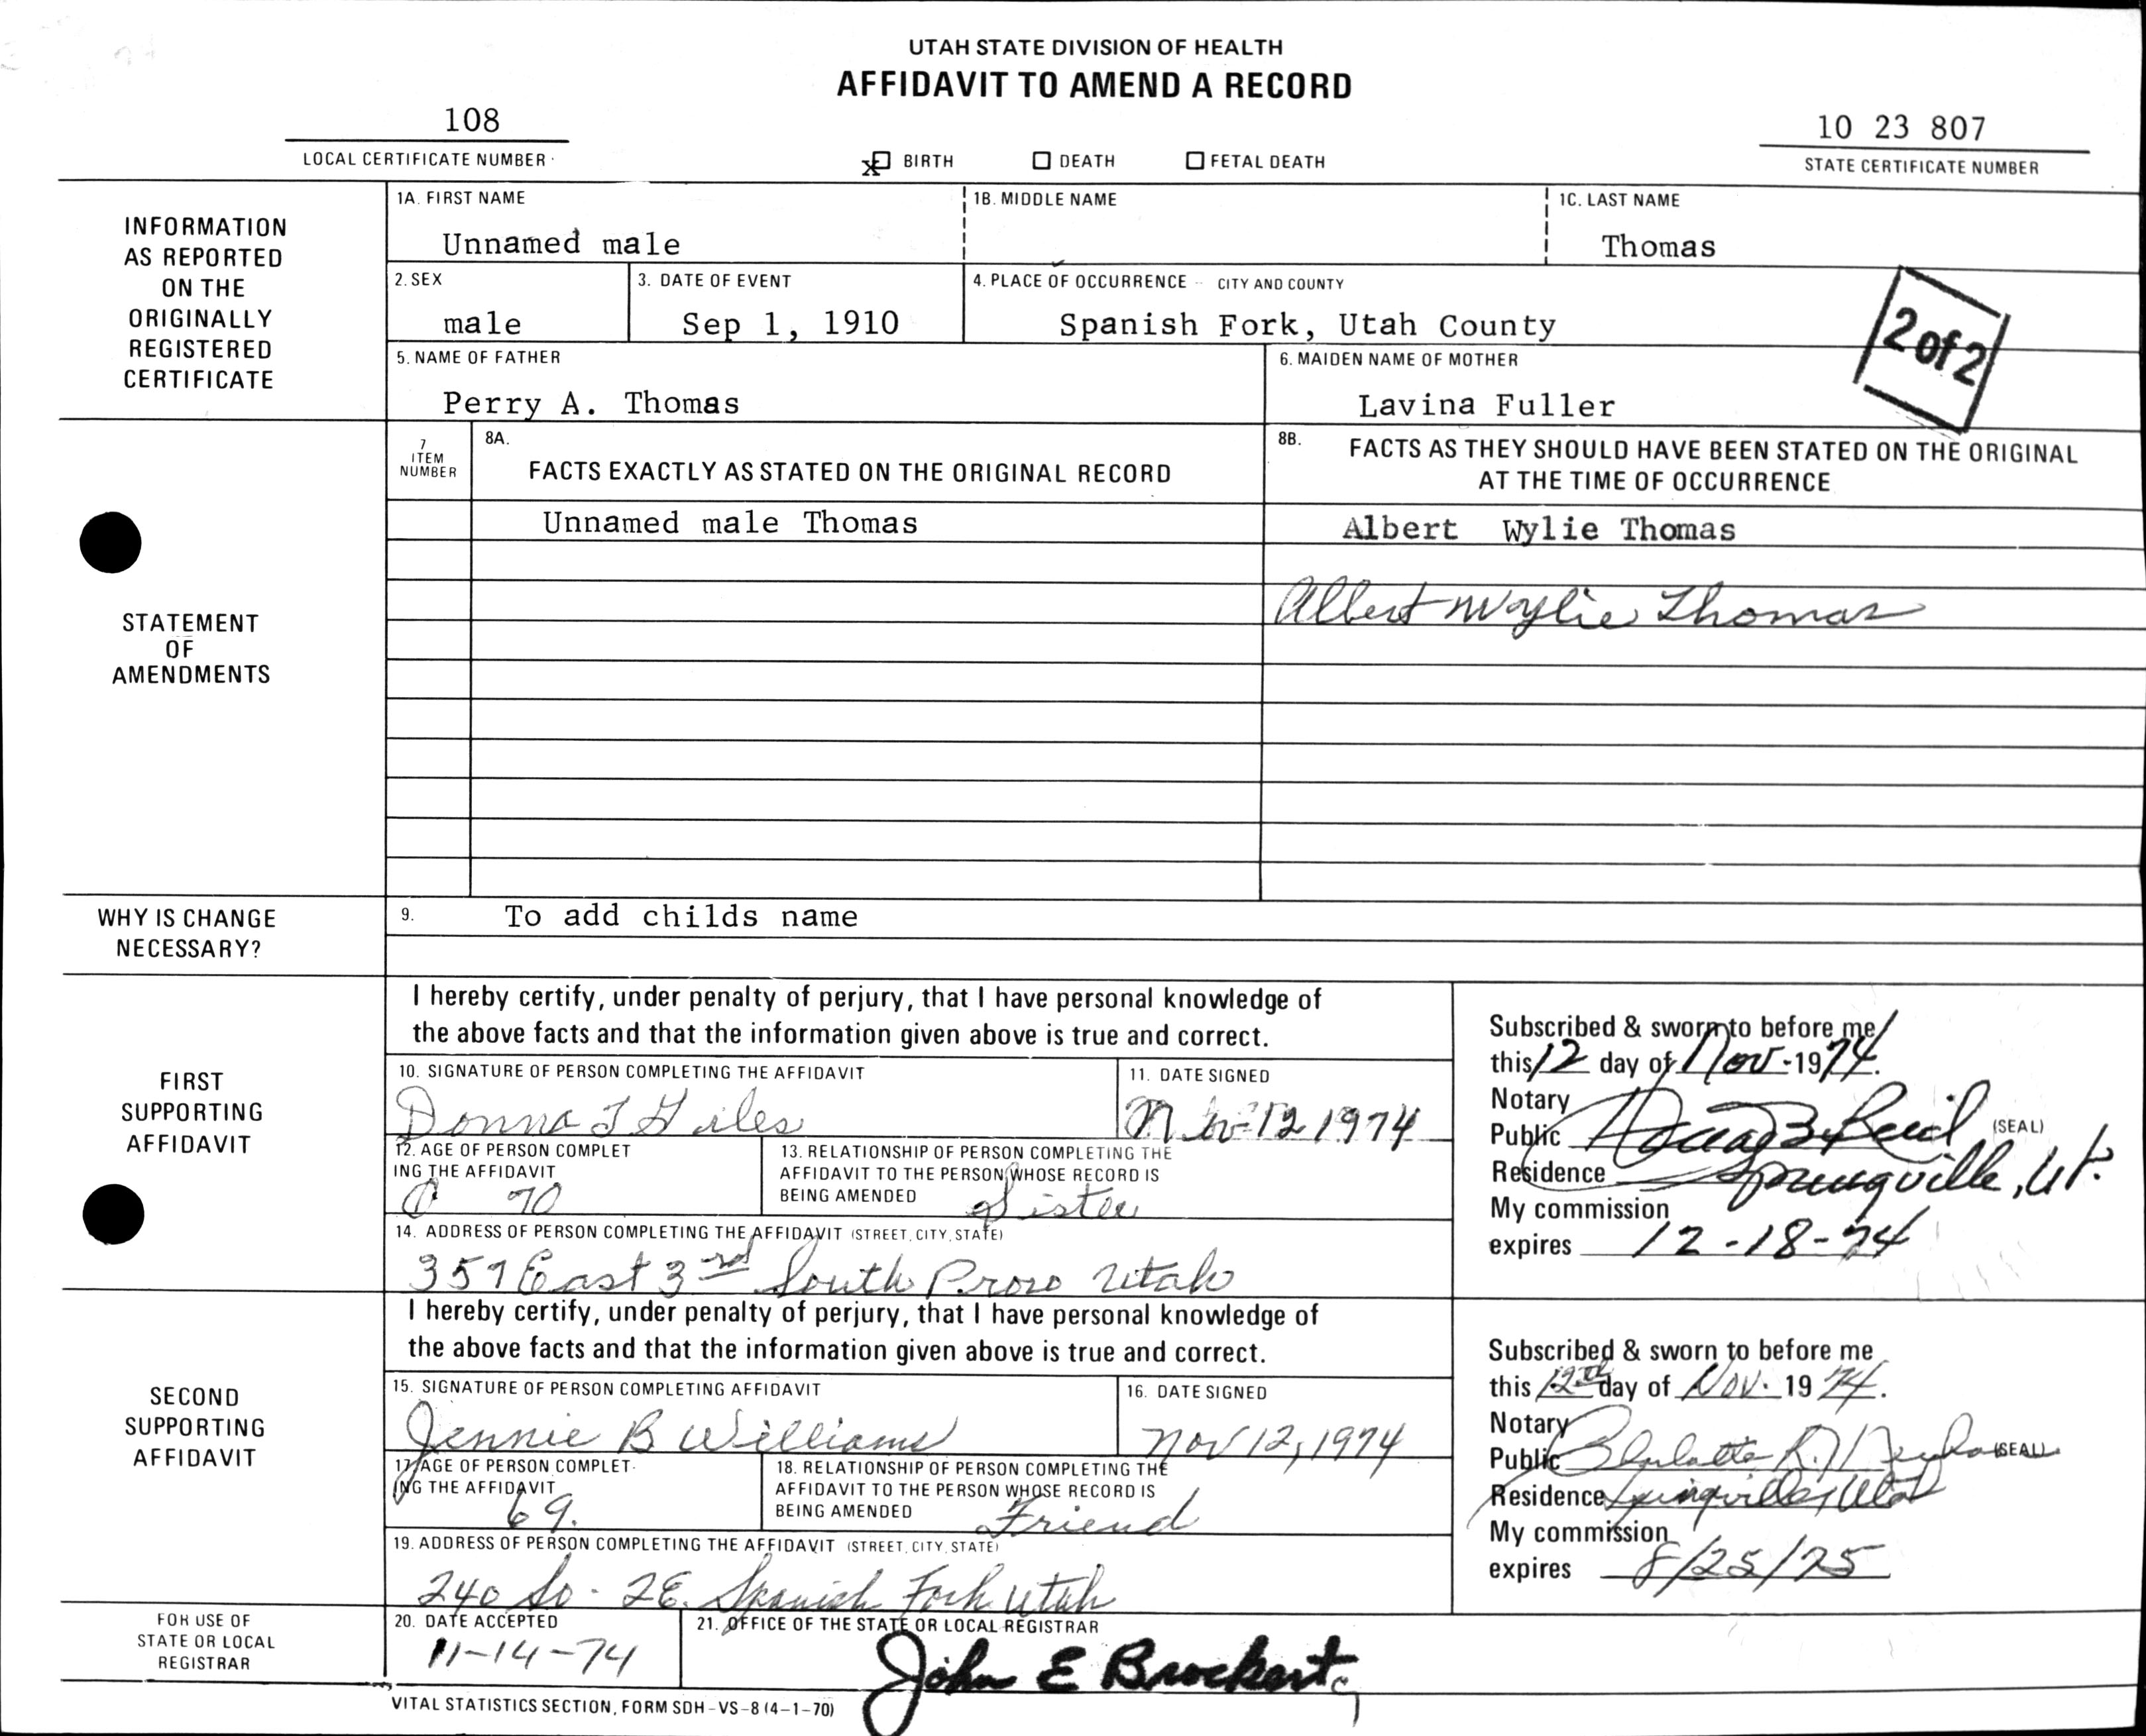 UTAH STATE DIVISION OF HEALTH
AFFIDAVIT TO AMEND A RECORD
108
LOCAL CERTIFICATE NUMBER
x BIRTH DEATH FETAL DEATH
10 23 807
STATE CERTIFICATE NUMBER
INFORMATION
AS REPORTED
ON THE
ORIGINALLY
REGISTERED
CERTIFICATE
1A. FIRST NAME
Unnamed male
1B. MIDDLE NAME
1C. LAST NAME
Thomas
2. SEX
male
3. DATE OF EVENT
Sep 1, 1910
4. PLACE OF OCCURRENCE -- CITY AND COUNTY
Spanish Fork, Utah County
2 of 2
5. NAME OF FATHER
Perry A. Thomas
6. MAIDEN NAME OF MOTHER
Lavina Fuller
STATEMENT
OF
AMENDMENTS
7
ITEM
NUMBER
8A.
FACTS EXACTLY AS STATED ON THE ORIGINAL RECORD
8B.
FACTS AS THEY SHOULD HAVE BEEN STATED ON THE ORIGINAL
AT THE TIME OF OCCURRENCE
Unnamed male Thomas
Albert Wylie Thomas
Albert Wylie Thomas
WHY IS CHANGE
NECESSARY?
9. To add childs name
FIRST
SUPPORTING
AFFIDAVIT
I hereby certify, under penalty of perjury, that I have personal knowledge of
the above facts and that the information given above is true and correct.
10. SIGNATURE OF PERSON COMPLETING THE AFFIDAVIT
Donna T Giles
11. DATE SIGNED
12 1974
12. AGE OF PERSON COMPLET
ING THE AFFIDAVIT
70
13. RELATIONSHIP OF PERSON COMPLETING THE
AFFIDAVIT TO THE PERSON WHOSE RECORD IS
BEING AMENDED Sister
14. ADDRESS OF PERSON COMPLETING THE AFFIDAVIT (STREET, CITY, STATE)
East 3rd South Provo Utah
Subscribed & sworn to before me
this 12 day of Nov - 1974.
Notary
Public (SEAL)
Residence Springville, Ut.
My commission
expires 12-18-74
SECOND
SUPPORTING
AFFIDAVIT
I hereby certify, under penalty of perjury, that I have personal knowledge of
the above facts and that the information given above is true and correct.
15. SIGNATURE OF PERSON COMPLETING AFFIDAVIT
Jennie B Williams
16. DATE SIGNED
Nov 12, 1974
17. AGE OF PERSON COMPLET-
ING THE AFFIDAVIT
69.
18. RELATIONSHIP OF PERSON COMPLETING THE
AFFIDAVIT TO THE PERSON WHOSE RECORD IS
BEING AMENDED Friend
19. ADDRESS OF PERSON COMPLETING THE AFFIDAVIT (STREET, CITY, STATE)
240 So - 2E. Spanish Fork Utah
Subscribed & sworn to before me
this 12th day of Nov. 19 74.
Notary
Public (SEAL)
Residence Springville, Utah
My commission
expires 8/25/75
FOR USE OF
STATE OR LOCAL
REGISTRAR
20. DATE ACCEPTED
11-14-74
21. OFFICE OF THE STATE OR LOCAL REGISTRAR
John E Brockert
VITAL STATISTICS SECTION, FORM SDH-VS-8 (4-1-70)